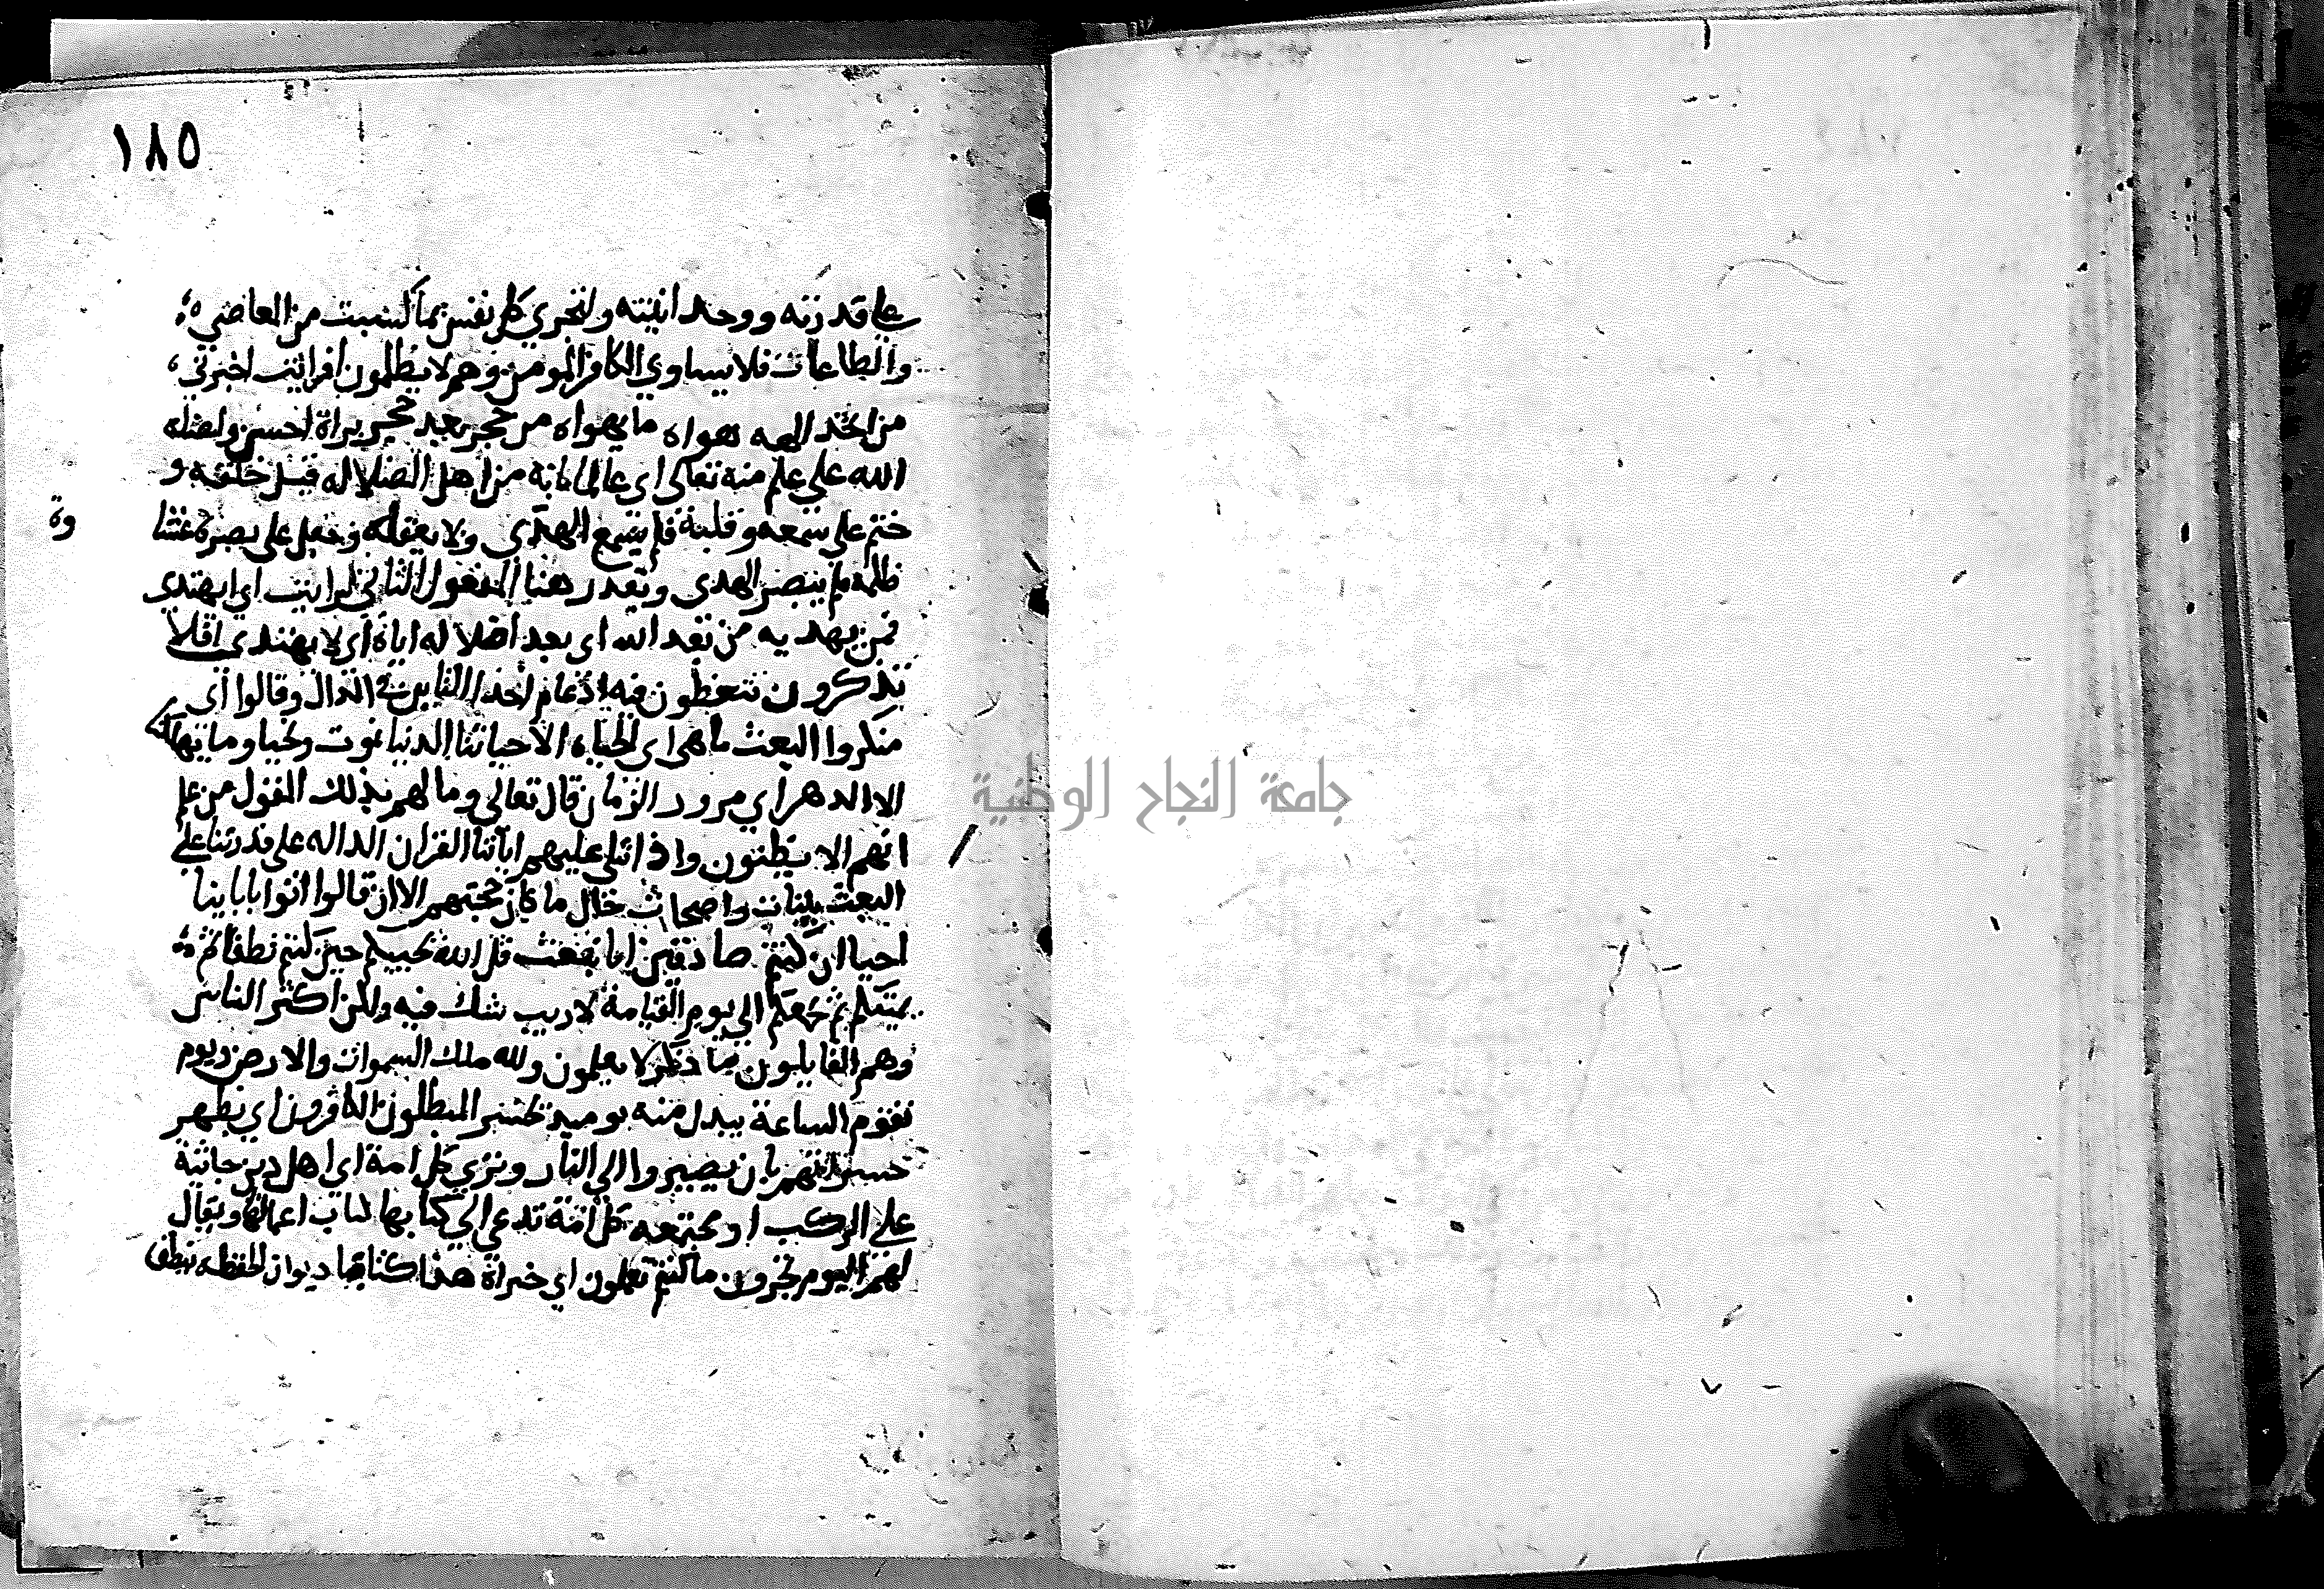 ١٨٥
علي قدرته ووحدانيته ولتجزي كل نفس بما كسبت من المعاصي
والطاعات فلا يساوي الكافر المومن وهم لا يظلمون افرايت اخبرني
من اتخذ الهه هواه ما يهواه من حجر بعد حجر يراه احسن واضله
الله علي علم منه تعالي اي عالما بانه من اهل الضلاله قبل خلقه و
ختم علي سمعه وقلبه فلم يسمع الهدي ولا يعقله وجعل علي بصره غشا
وة
ظلمة فلم يبصر الهدي ويقدر هنا المفعول الثاني لرايت اي ايهتدي
فمن يهديه من بعد الله اي بعد اضلاله اياه اي لا يهتدي افلا
تذكرون تتعظون فيه ادغام احدي التايين في الذال وقالوا اي
منكروا البعث ما هي اي الحياه الا حياتنا الدنيا نموت ونحيا وما يهلكنا
الا الدهر اي مرور الزمان قال تعالي وما لهم بذلك القول من علم
انهم الا يظنون واذا تتلي عليهم اياتنا القران الداله علي قدرتنا علي
البعث بينات واضحات حال ما كان حجتهم الا ان قالوا اتوا باباينا
احيا ان كنتم صادقين انا نبعث قل الله يحييكم حين كنتم نطفا ثم
يميتكم ثم يجمعكم الي يوم القيامة لا ريب شك فيه ولكن اكثر الناس
وهم القايلون ما ذكر لا يعلمون ولله ملك السموات والارض ويوم
تقوم الساعة يبدل منه يوميذ يخسر المبطلون الكافرون اي يظهر
خسرانهم بان يصيروا الي النار وتري كل امة اي اهل دين جاثية
علي الركب او مجتمعه كل امة تدعي الي كتابها كتاب اعمالها ويقال
لهم اليوم تجزون ما كنتم تعملون اي جزاه هذا كتابنا ديوان الحفظه ينطق
جامعة النجاح الوطنية